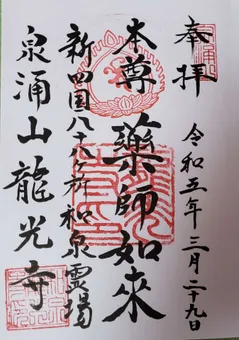 奉拝
令和五年三月二十九日
本尊 藥師如來
新四国八十八ヶ所 和泉霊場
泉涌山龍光寺